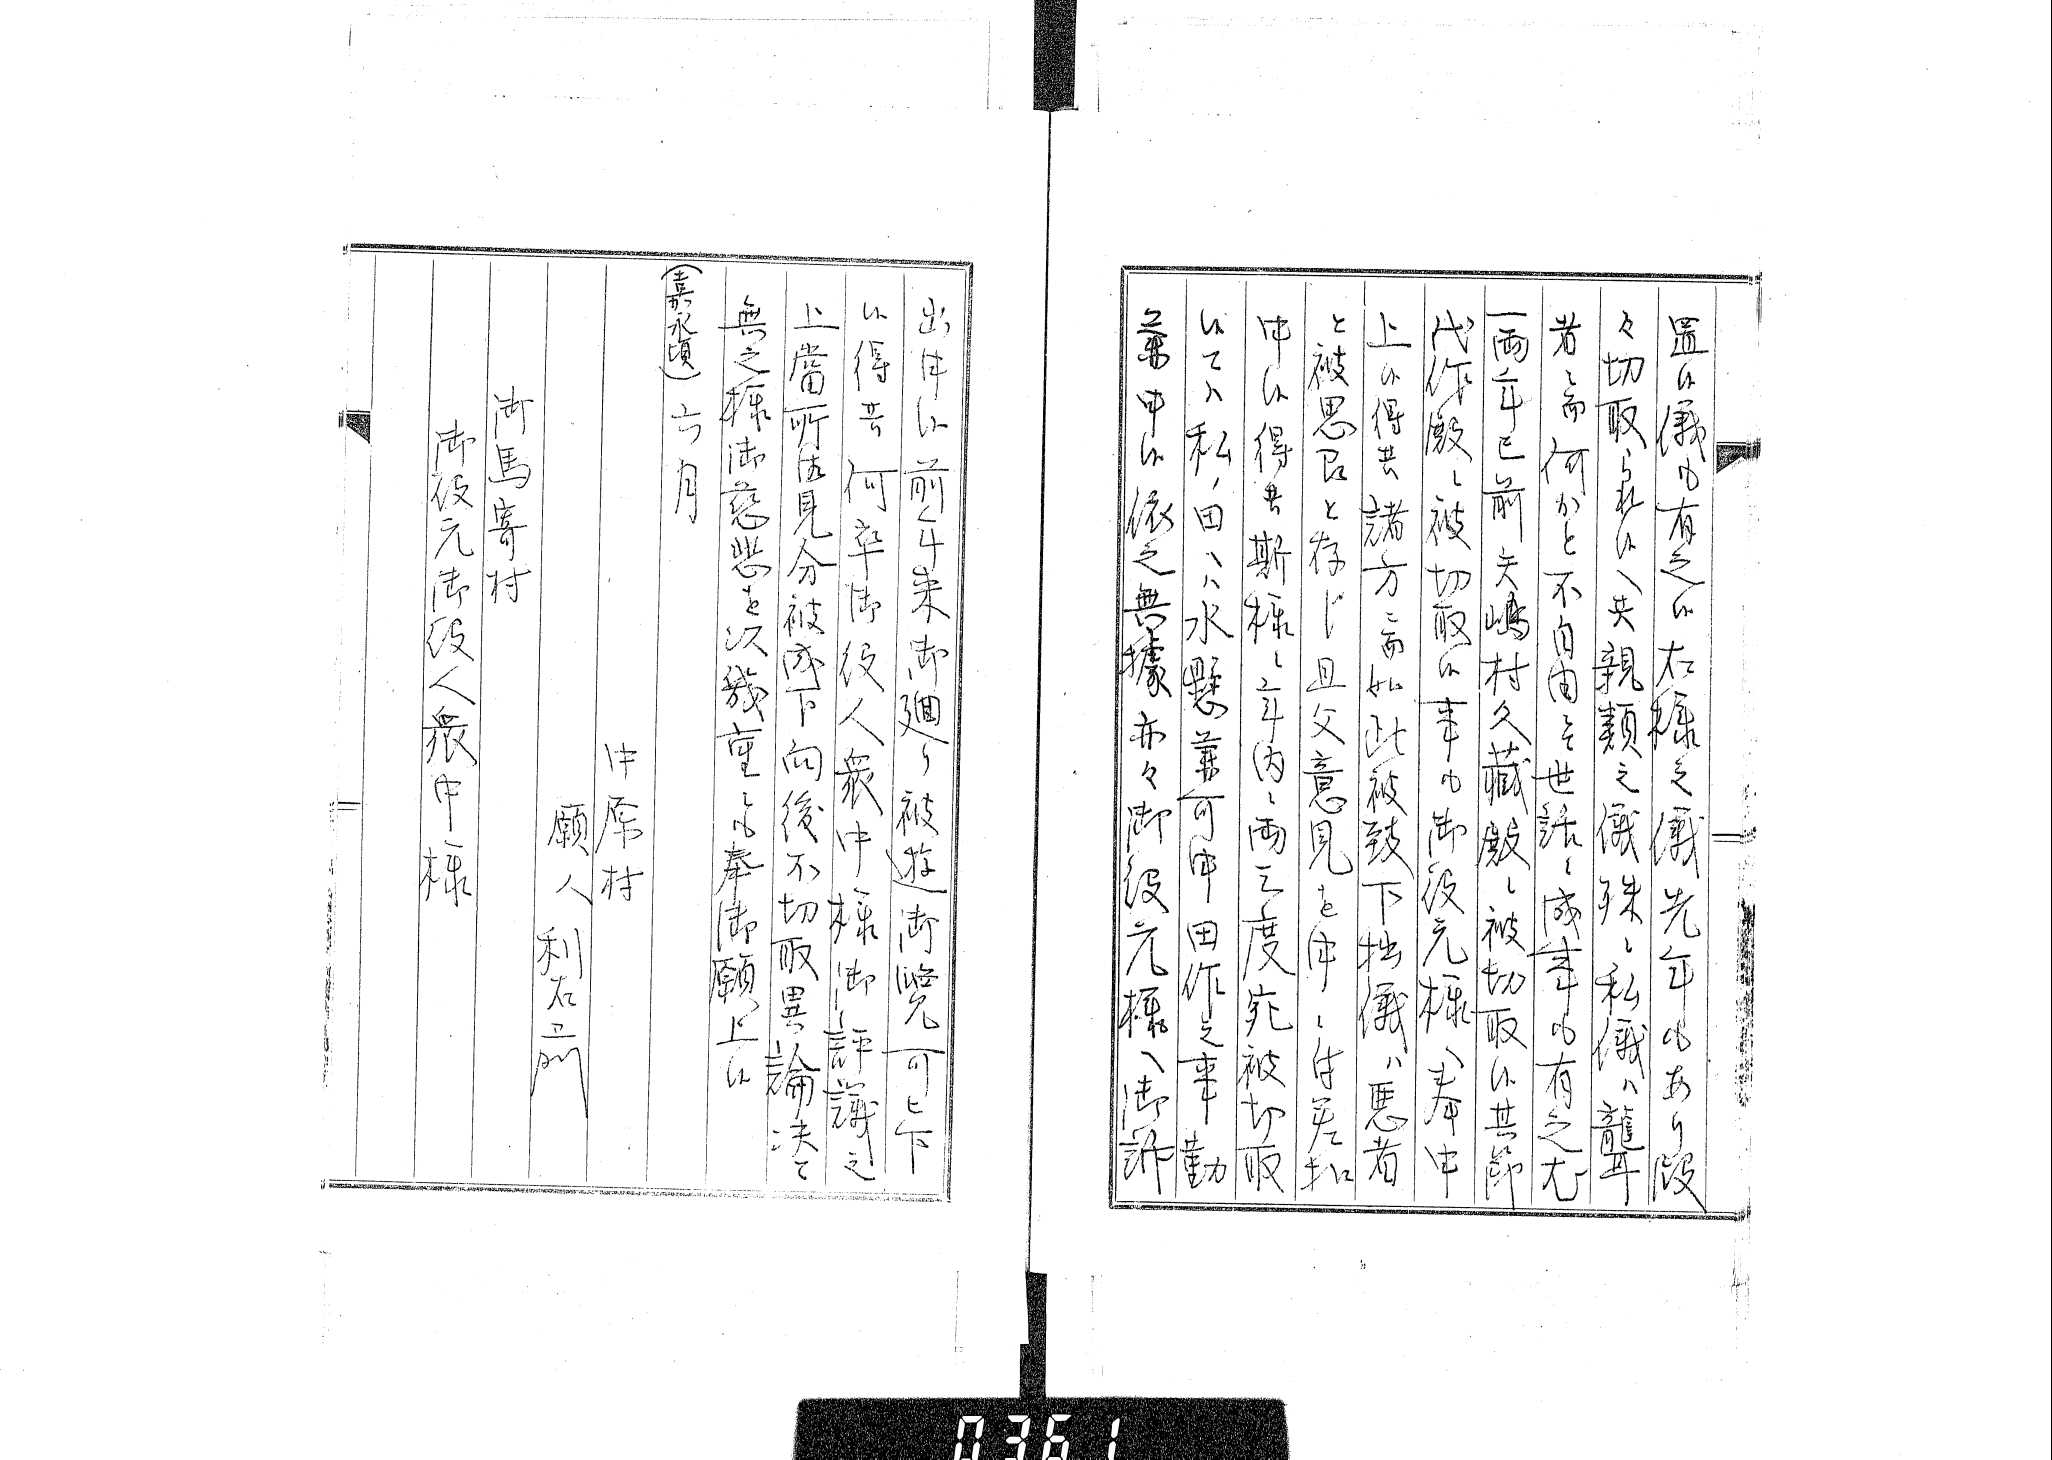 置候儀も有之候左様之儀先年もあり段
々切取られ候ハ共親類之儀殊ニ私儀ハ聾耳
者ニ而何かと不自由を世話ニ成事も有之尤
一両年已前矢嶋村久藏殿ニ被切取候其節
代作殿ニ被切取候事も御役元様へ奉申
上候得共諸方ニ而如此被致下拙儀ハ悪者
と被思召と存じ且父意見を申ニ付差扣
申候得共斯様ニ年内ニ両三度宛被切取
候てハ私ノ田ハハ水懸兼可申田作之事勤
兼申候依之無據亦々御役元様へ御訴
出申候前年来御廻り被遊御覧可被下
候得共何卒御役人衆中様御評議之
上當所御見分被成下向後不切取異論決て
無之様御慈悲を以幾重ニも奉御願上候
(嘉永頃)六月
中原村
願人 利右エ門
御馬寄村
御役元御役人衆中様
0361